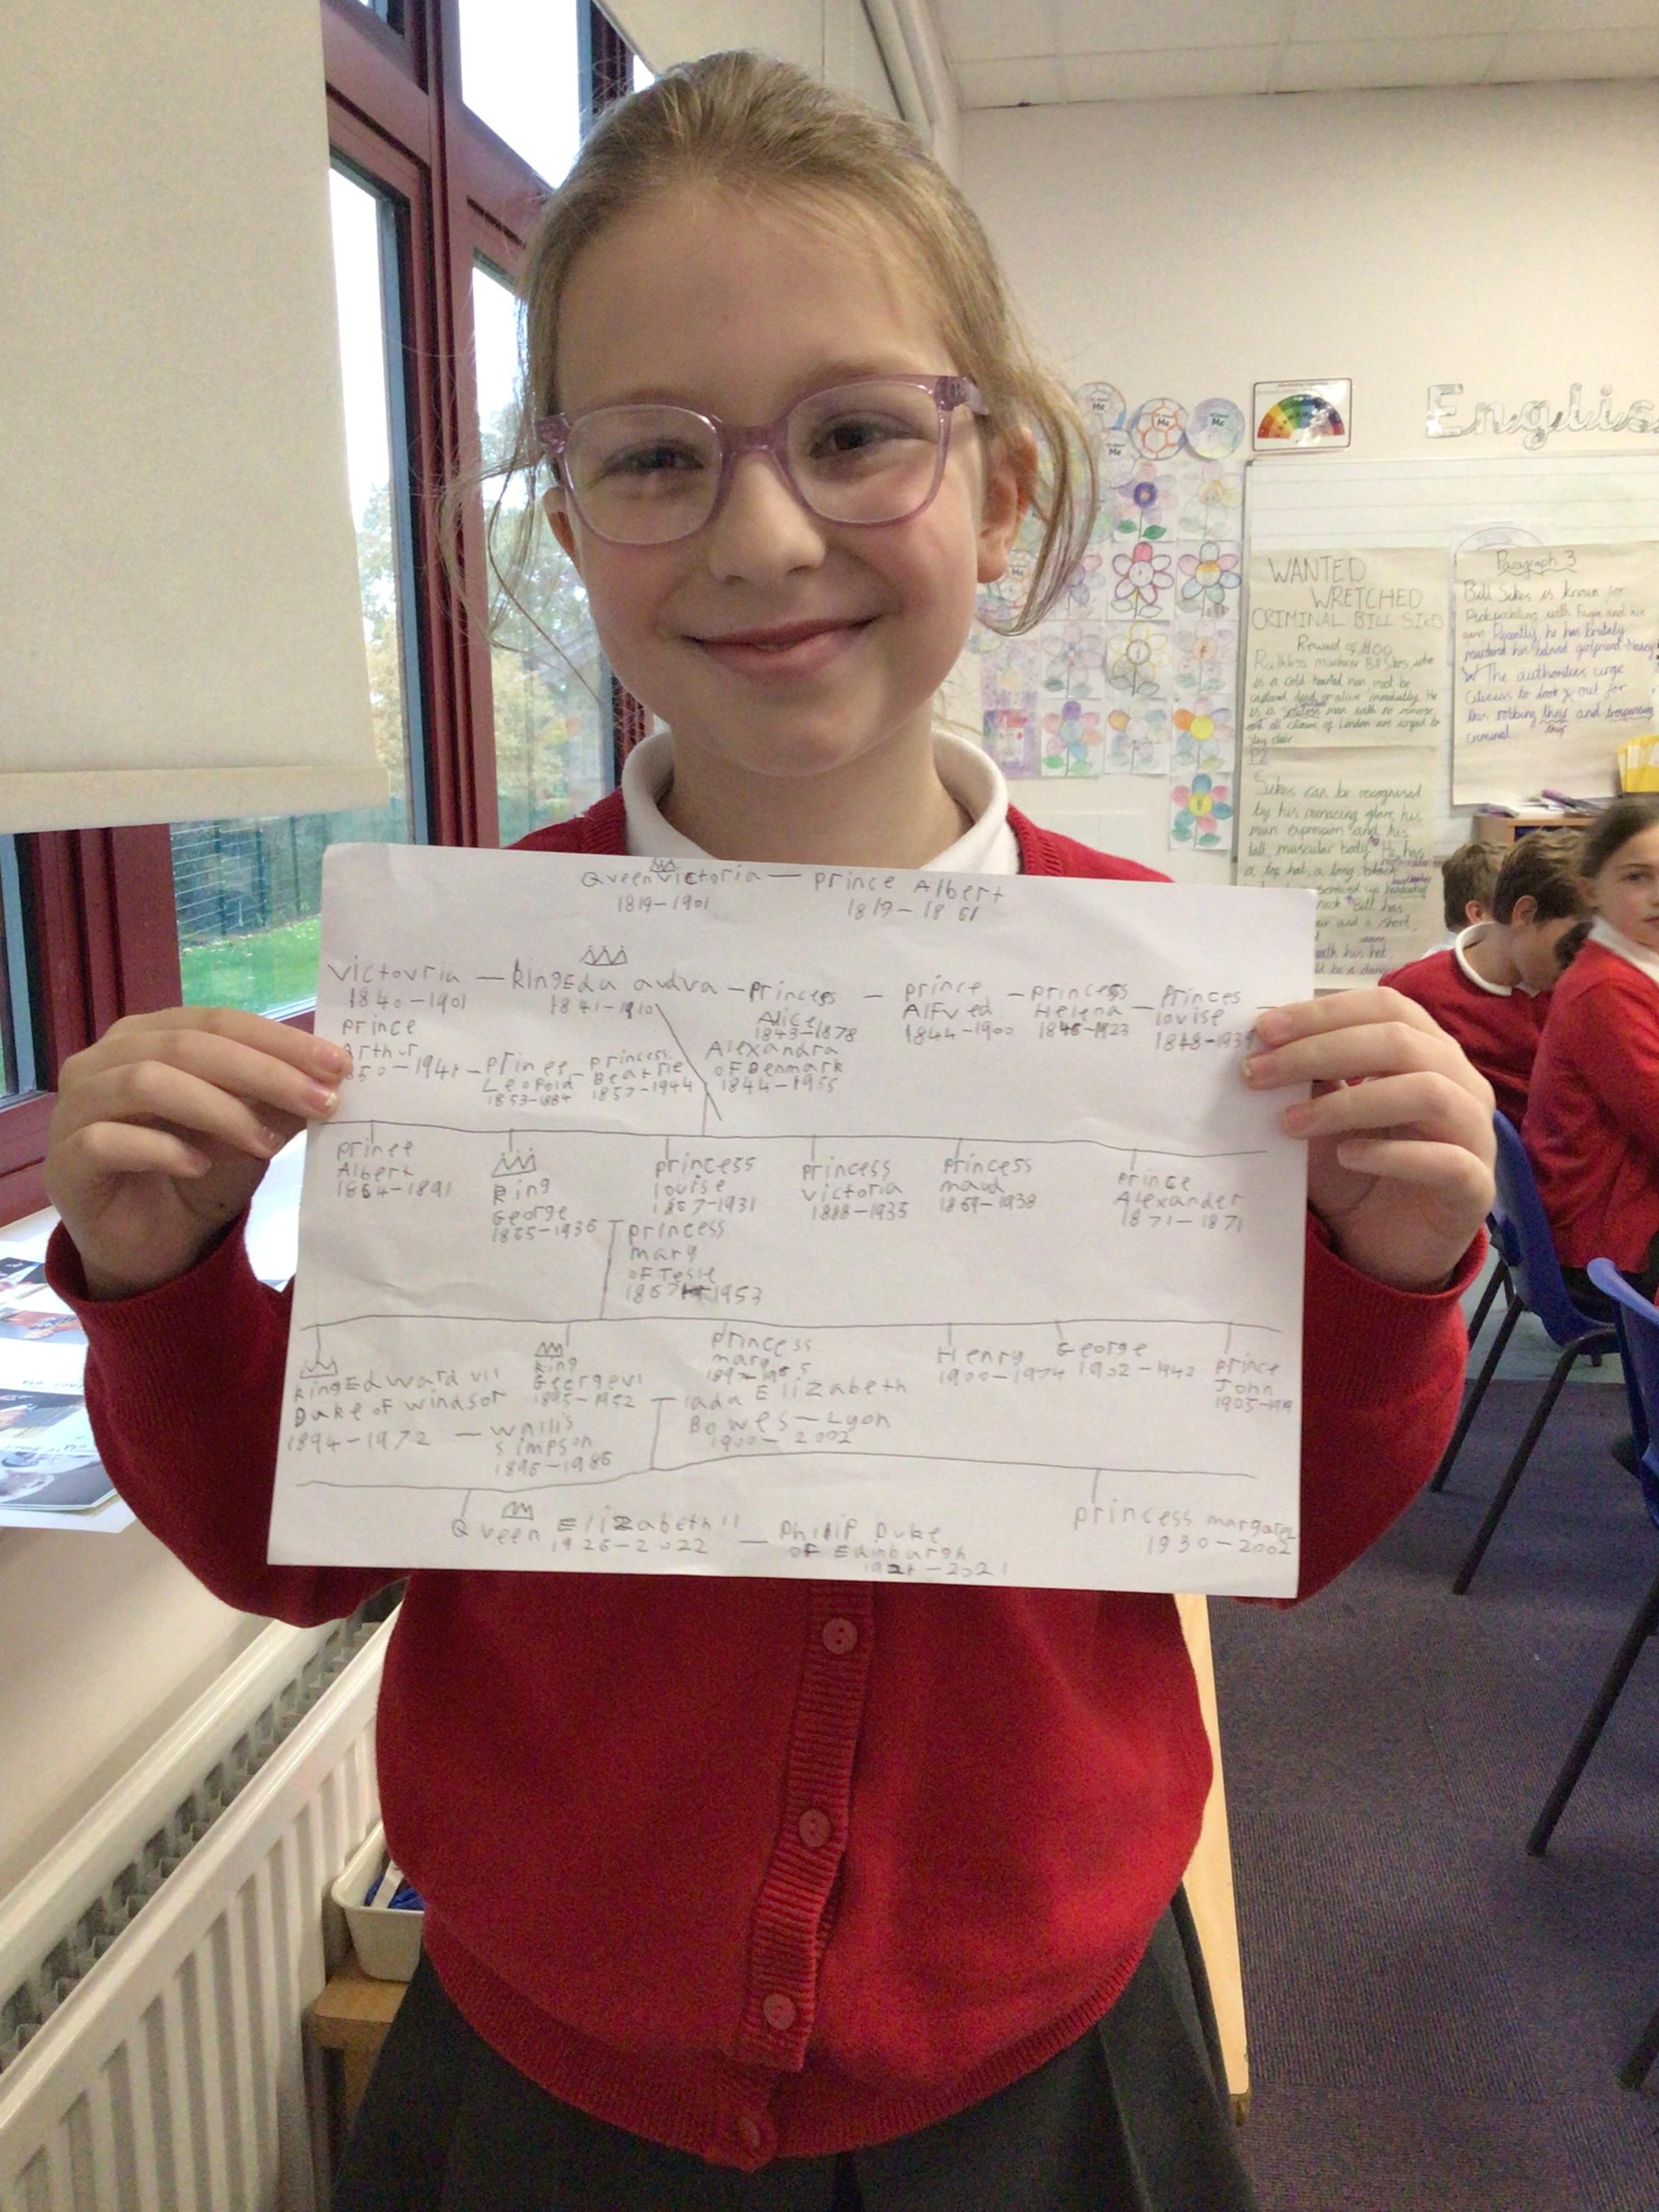 Englis
WANTED
WRETCHED
CRIMINAL BILL SIKES
Reward of £100
Ruthless murderer Bill Sikes, who
is a cold hearted man must be
captured dead or alive immediatly. He
is a man with no remorse,
all citizens of London are urged to
stay clear.
P2
Sikes can be recognised
by his menacing glare, his
mean expression and his
tall, muscular body. He has
a top hat, a long, black
Paragraph 3
Bill Sikes is known for
Pickpocketing with Fagin and his
gang. Recently, he has brutally
murdered his beloved girlfriend Nancy
The authorities urge
citizens to look out for
this robbing thief and
criminal.
Me
Me
Me
Queen Victoria — Prince Albert
1819-1901 1819-1861
Victouria — King Eda audva — Princess — prince — princess — Princes
1840-1901 1841-1910 Alice Alfred Helena louise
1843-1878 1844-1900 1846-1923 1848-1939
prince
Arthur
1850-1941 — Prince — Princess Alexandra
Leopold Beatrie of Denmark
1853-1884 1857-1944 1844-1955
prince
Albert
1864-1891
King
George
1865-1936
princess
louise
1867-1931
princess
victoria
1868-1935
princess
maud
1869-1938
Prince
Alexander
1871-1871
princess
mary
of Teck
1867-1953
King Edward VII
Duke of windsor
1894-1972 — wallis
simpson
1896-1986
King
George VI
1895-1952
princess
mary
1897-1965
lada Elizabeth
Bowes-Lyon
1900-2002
Henry
1900-1974
George
1902-1942
prince
John
1905-1919
Queen Elizabeth II — Philip Duke
1926-2022 of Edinburgh
1921-2021
princess margaret
1930-2002